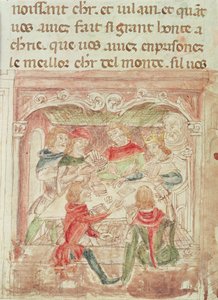 noissent chr. et vilain. et quāt
vos aviez fait si grant honte a
chr̄e. que vos aviez enprisonez
le meillor chr̄ del monde. sil vos